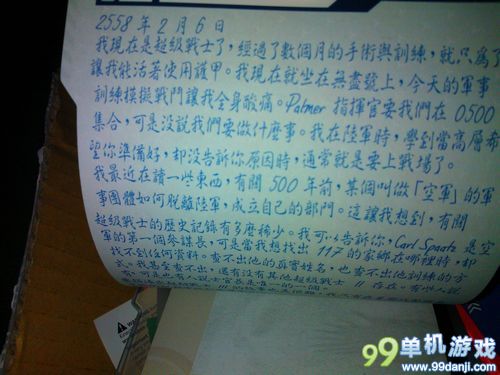 2558 年 2 月 6 日
我現在是超級戰士了，經過了數個月的手術與訓練，就只為了
讓我能活著使用護甲。我現在就坐在無盡號上，今天的軍事
訓練模擬戰鬥讓我全身酸痛。Palmer 指揮官要我們在 0500
集合，可是没說我們要做什麼事。我在陸軍時，學到當高層希
望你準備好，却没告訴你原因時，通常就是要上戰場了。
我最近在讀一些東西，有關 500 年前，某個叫做「空軍」的軍
事團體如何脫離陸軍，成立自己的部門。這讓我想到，有關
超級戰士的歷史記錄有多麼稀少。我可以告訴你，Carl Spaatz 是空
軍的第一個參謀長，可是當我想找出 117 的家鄉在哪裡時，却
找不到任何資料。查不出他的真實姓名，也查不出他訓練的方
式。我甚至查不出，還有没有其他超級戰士 存在。有些人說
99单机游戏
www.99danji.com